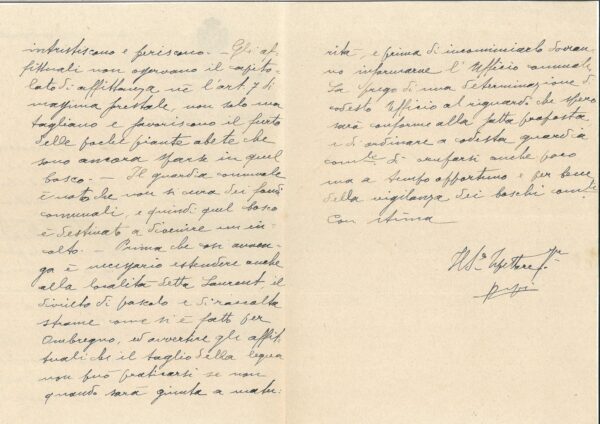 intristiscono e periscono. - Gli af-
fittuali non osservano il capito-
lato di affittanza nè l'art. 7 di
massima forestale, non solo ma
tagliano e favoriscono il furto
delle poche piante abete che
sono ancora sparse in quel
bosco. - Il guardia comunale
è noto che non si cura dei fondi
comunali, e quindi quel bosco
è destinato a divenire un in-
colto. - Prima che ciò avven-
ga è necessario estendere anche
alla località detta Laurent, il
divieto di pascolo e di raccolta
strame come si è fatto per
Ombregno, ed avvertire gli affit-
tuali che il taglio della legna
non può praticarsi se non
quando sarà giunta a matu-
rità, e prima di incominciarlo dovran-
no informarne l'Ufficio comunale.
La prego di una determinazione di
codesto Ufficio al riguardo che spero
sarà conforme alla fatta proposta
e di ordinare a codesta guardia
com.le di occuparsi anche poco
ma a tempo opportuno e per bene
della vigilanza dei boschi com.li
Con stima